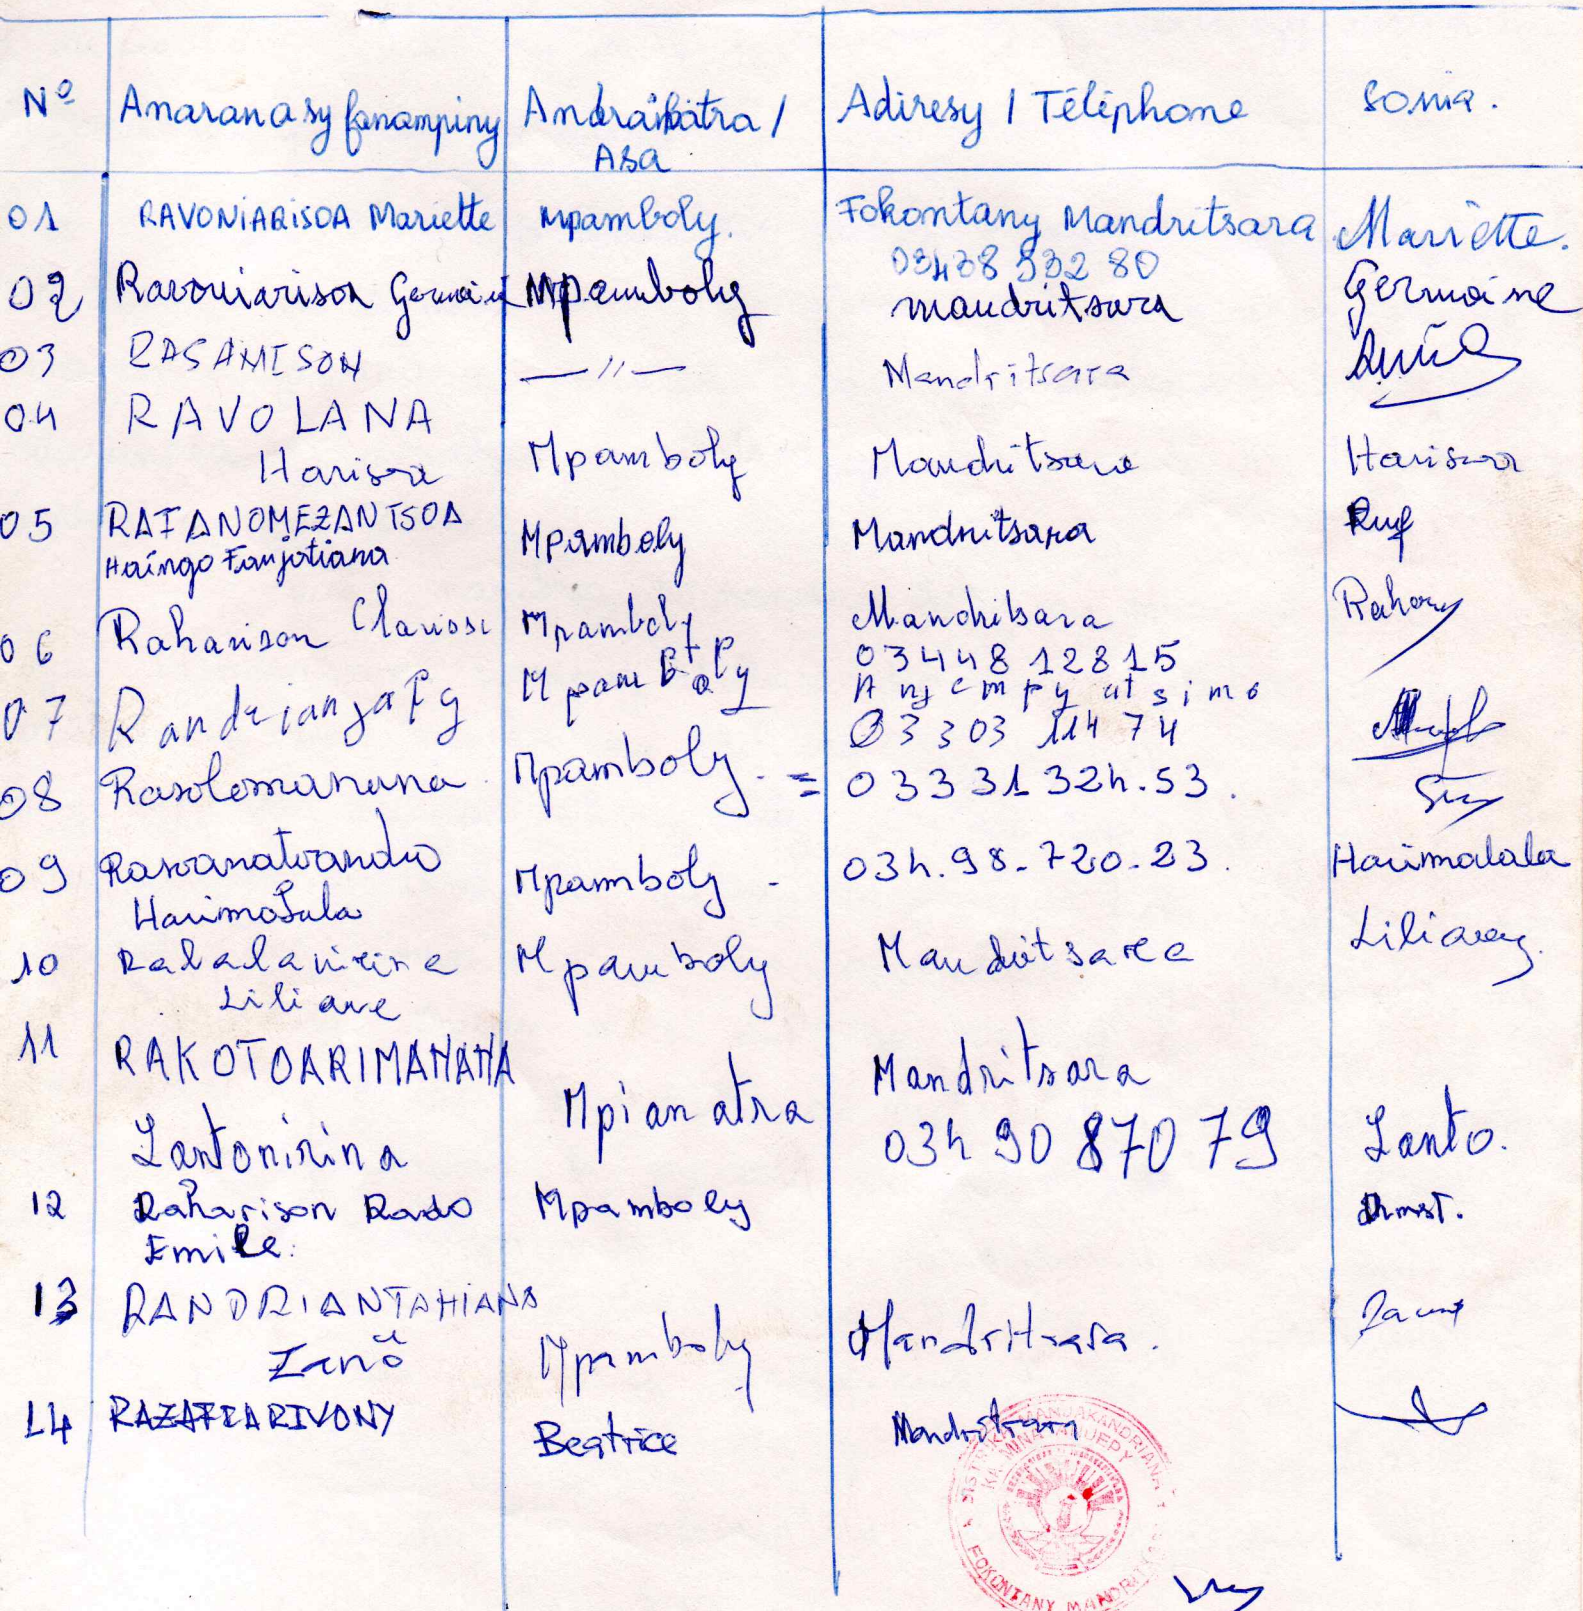 Nº Anarana sy fanampiny Andraikitra / Adiresy / Téléphone sonia.
Asa
01 RAVONIARISOA Mariette Mpamboly. Fokontany Mandritsara Mariette.
03438 932 80
02 Ravoniarisoa Germaine Mpamboly Mandritsara Germaine
03 RASAMISON —〃— Mandritsara
04 RAVOLANA
Harisoa Mpamboly Mandritsara Harisoa
05 RAFANOMEZANTSOA Mpamboly Mandritsara
Haingo Fanjatiana
06 Raharison Clarisse Mpamboly Mandritsara
03448 12815
07 Randrianjafy Mpamboly Anjempy atsimo
03303 114 74
08 Rasolomanana Mpamboly. = 03331 324.53.
09 Rasoanatoandro Mpamboly - 034.98-720-23. Harimalala
Harimalala
10 Ralalanirina Mpamboly Mandritsara
Liliane
11 RAKOTOARIMANANA Mpianatra Mandritsara
Lantonirina 034 90 870 79 Lanto.
12 Raharison Rado Mpamboly
Emile.
13 RANDRIANTAHIANA
Mpamboly Mandritsara.
14 RAZAFIARIVONY Beatrice Mandritsara
FOKONTANY